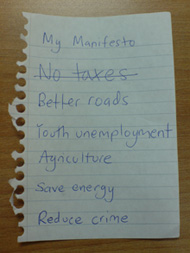 My Manifesto
No taxes
Better roads
Youth unemployment
Agriculture
Save energy
Reduce crime